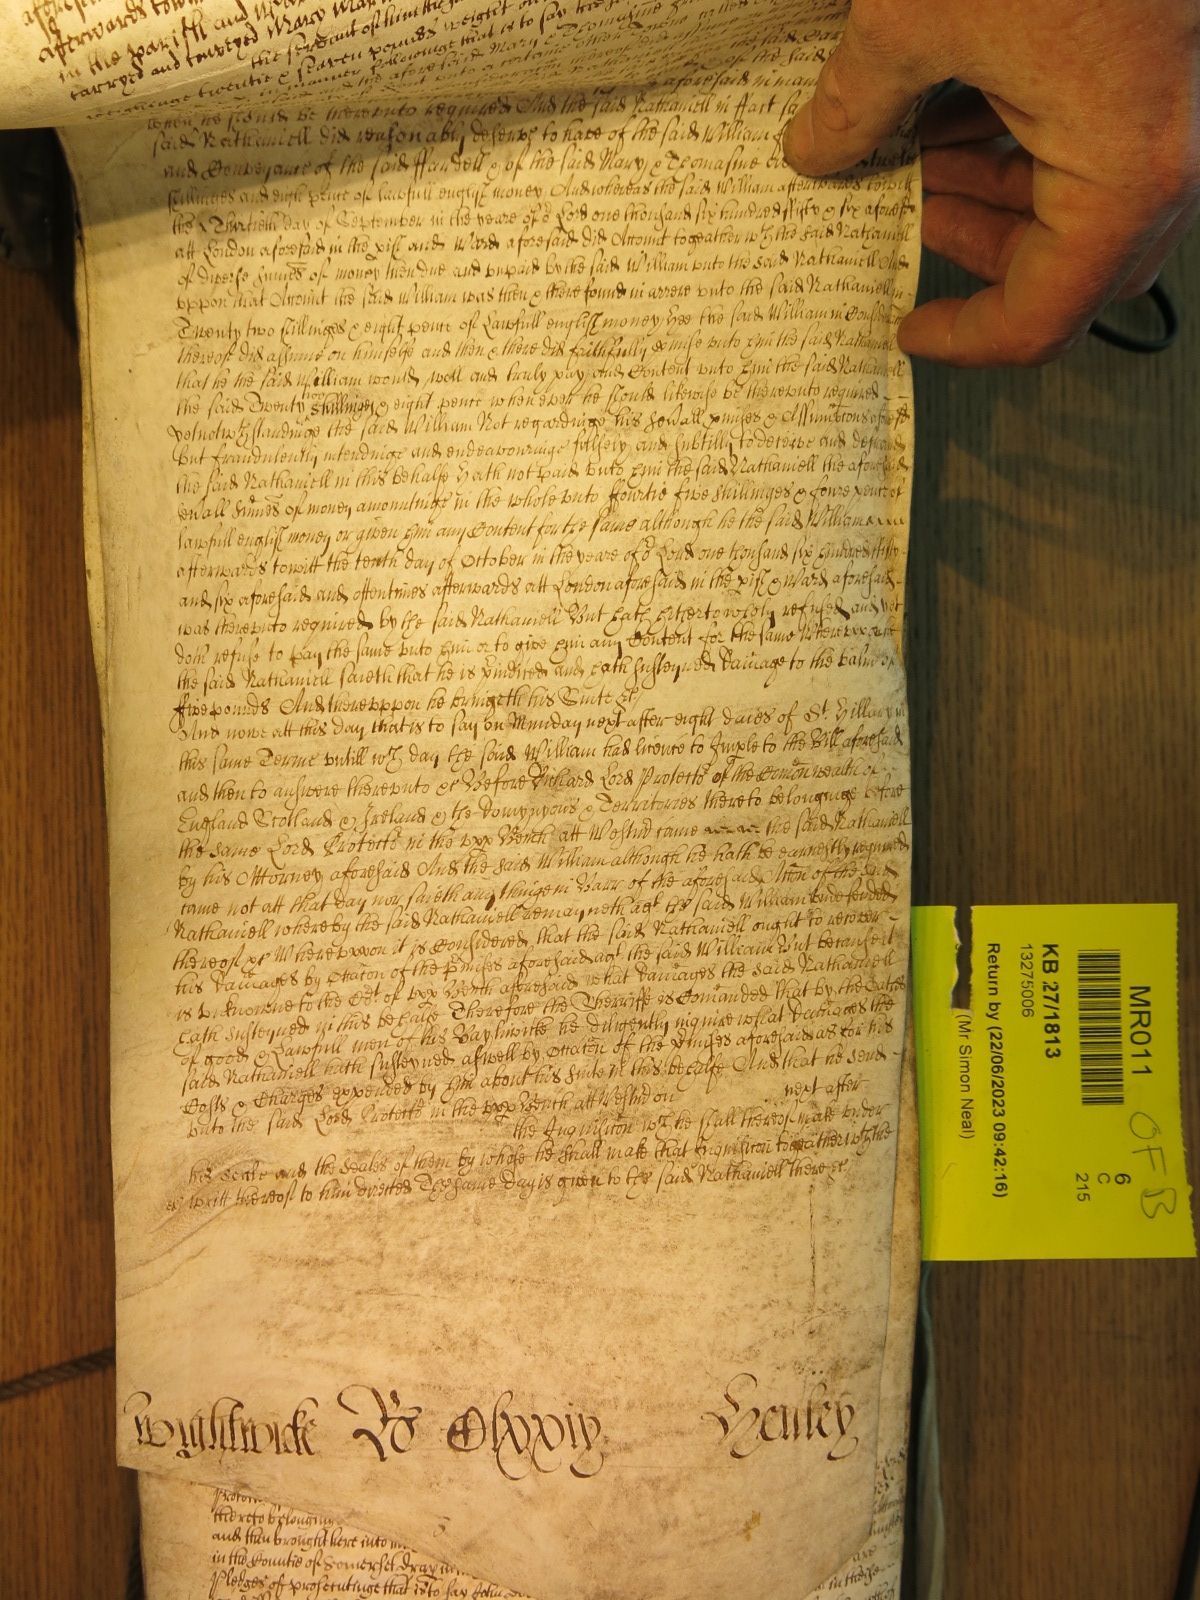 afterwards towitt
in the parish and Ward
carryed and conveyed Mary
the servant of him the
twentie & seaven pounds weight
in manner following that is to say the
and the aforesaid Mary & Thomasine
of the said
when he should be thereunto required And the said Nathaniell in ffact
said Nathaniell did reasonably deserve to have of the said William
and Conveyance of the said ffardell & of the said Mary & Thomasine
shillinges and eight pence of lawfull english money And whereas the said William afterwards towitt
the Thirtieth day of September in the yeare of or Lord one thousand six hundred fifty & six aforesd
att London aforesaid in the pish and Ward aforesaid did Accompt togeather wth the said Nathaniell
of diverse summes of money then due and unpaid by the said William unto the said Nathaniell And
uppon that Accompt the said William was then & there found in arrere unto the said Nathaniell in
Twenty two shillinges & eight pence of lawfull english money hee the said William in Consideracon
thereof did assume on himselfe and then & there did faithfully pmise unto him the said Nathaniell
that he the said William would well and truly pay and Content unto him the said Nathaniell
the said Twenty two shillinges & eight pence when ever he should likewise be thereunto required
yet notwthstandinge the said William Not regardinge his sevall pmises & Assumptions aforesd
but fraudulently intendinge and endeavouringe falsely and subtilly to deceive and defraud
the said Nathaniell in this behalfe hath not paid unto him the said Nathaniell the aforesaid
sevall summes of money amountinge in the whole unto ffourtie five shillinges & foure pence of
lawfull english money or given him any Content for the same although he the said William
afterwards towitt the tenth day of October in the yeare of or Lord one thousand six hundred fifty
and six aforesaid and oftentimes afterwards att London aforesaid in the pish & Ward aforesaid
was thereunto required by the said Nathaniell But hath hitherto wholy refused and yet
doth refuse to pay the same unto him or to give him any Content for the same Whereuppon
the said Nathaniell saieth that he is piudiced and hath susteyned Damage to the value of
ffive pounds And thereuppon he bringeth his Suite &c
And nowe att this day that is to say on Munday next after eight daies of St. Hillary in
this same Terme untill wch day the said William had licence to Imple to the Bill aforesaid
and then to answere thereunto &c Before Richard Lord Protector of the Comonwealth of
England Scotland & Ireland & the Dominyons & Territories thereto belonginge before
the same Lord Protector in the upp Bench att Westmr came the said Nathaniell
by his Attorney aforesaid And the said William although he hath be earnestly required
came not att that day nor saieth any thinge in Barr of the aforesaid Accon of the said
Nathaniell whereby the said Nathaniell remayneth agt the said William undefended
thereof &c Whereuppon it is Considered that the said Nathaniell ought to recover
his Damages by Occacon of the pmises aforesaid agt the said William But because it
is unknowne to the Crt of upp Bench aforesaid what Damages the said Nathaniell
hath susteyned in this behalfe Therefore the Sherriffe is Comanded that by the Oathes
of good & lawfull men of his Baylywicke he diligently inquire what Damages the
said Nathaniell hath susteyned aswell by Occacon of the pmises aforesaid as for his
Costs & Charges expended by him about his Suite in this behalfe And that he send
unto the said Lord Protector in the upp Bench att Westmr on next after
the Inquisicon wch he shall thereof make under
his Seale and the Seales of them by whose he shall make that Inquisicon togeather wth the
writt thereof to him directed The same day is given to the said Nathaniell there &c
Wightwicke Ro Clxxiiij Henley
Protector
thereto belonginge
and then brought here into
in the Countie of Somersett
Pledges of prosecutinge that is to say John
MR011
OF B
KB 27/1813
13275006
6
C
215
Return by (22/06/2023 09:42:16)
(Mr Simon Neal)